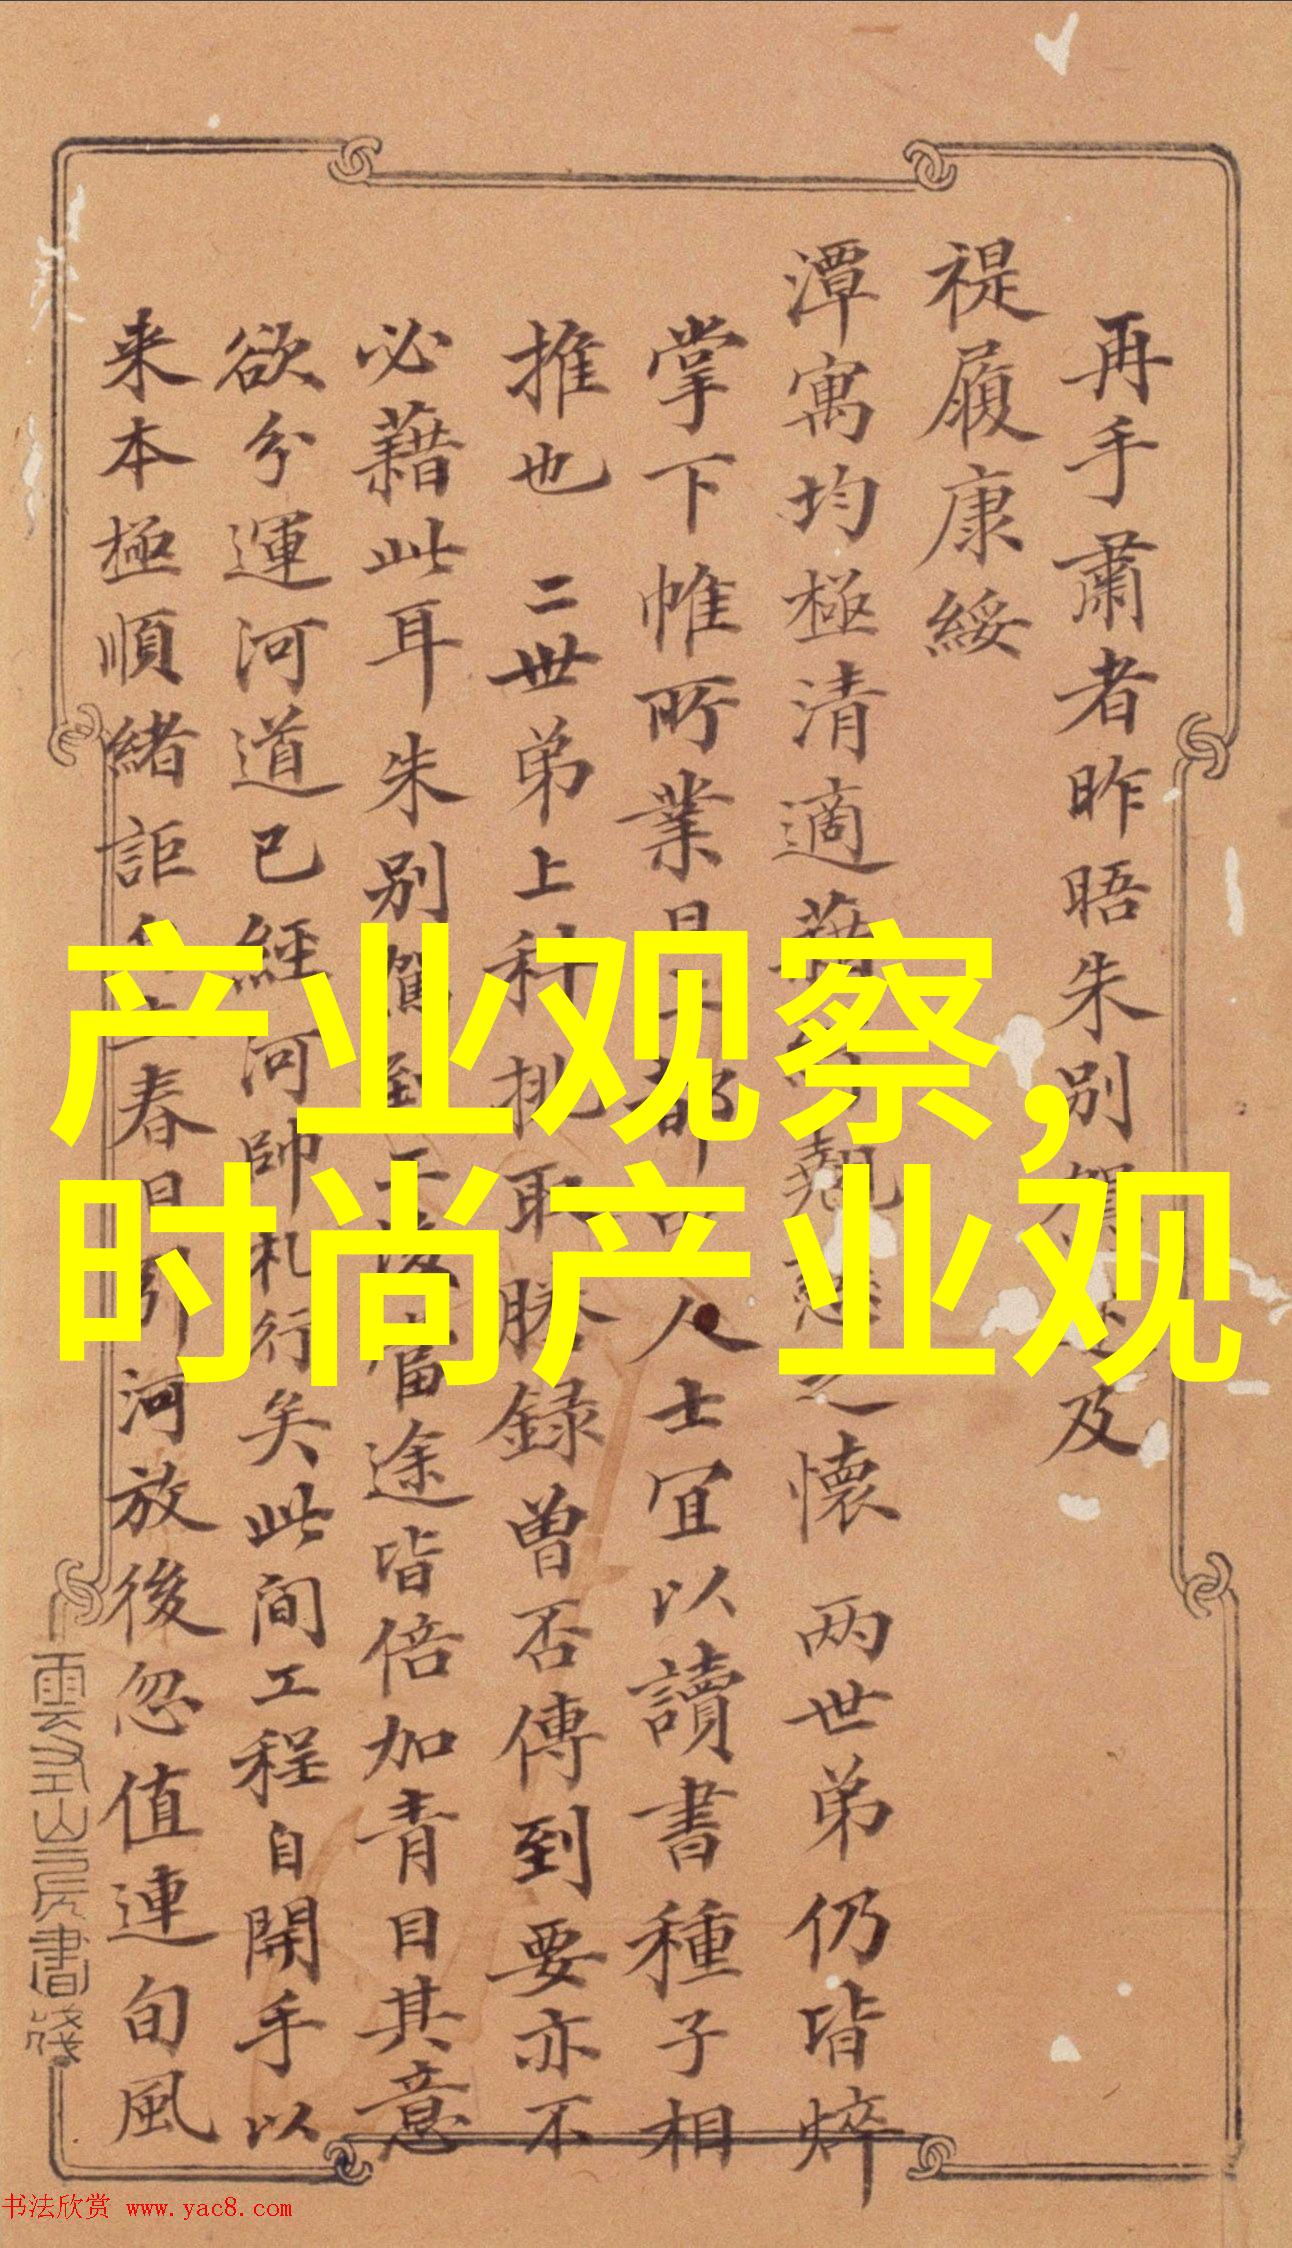 再手肅者昨晤朱别駕述及
禔履康綏
潭寓均極清適藉慰懸之懷 两世弟仍皆焠
掌下帷所業日都人士宜以讀書種子相
推也 二世弟上科挑取謄録曾否傳到要亦不
必藉此耳朱别駕到工後當途皆倍加青目其意
欲兮運河道已經河帥札行矣此间工程自開手以
来本極順緒詎春河放後忽值連旬風
雲左山房書箋
产业观察,
时尚产业观
书法欣赏 www.yac8.com